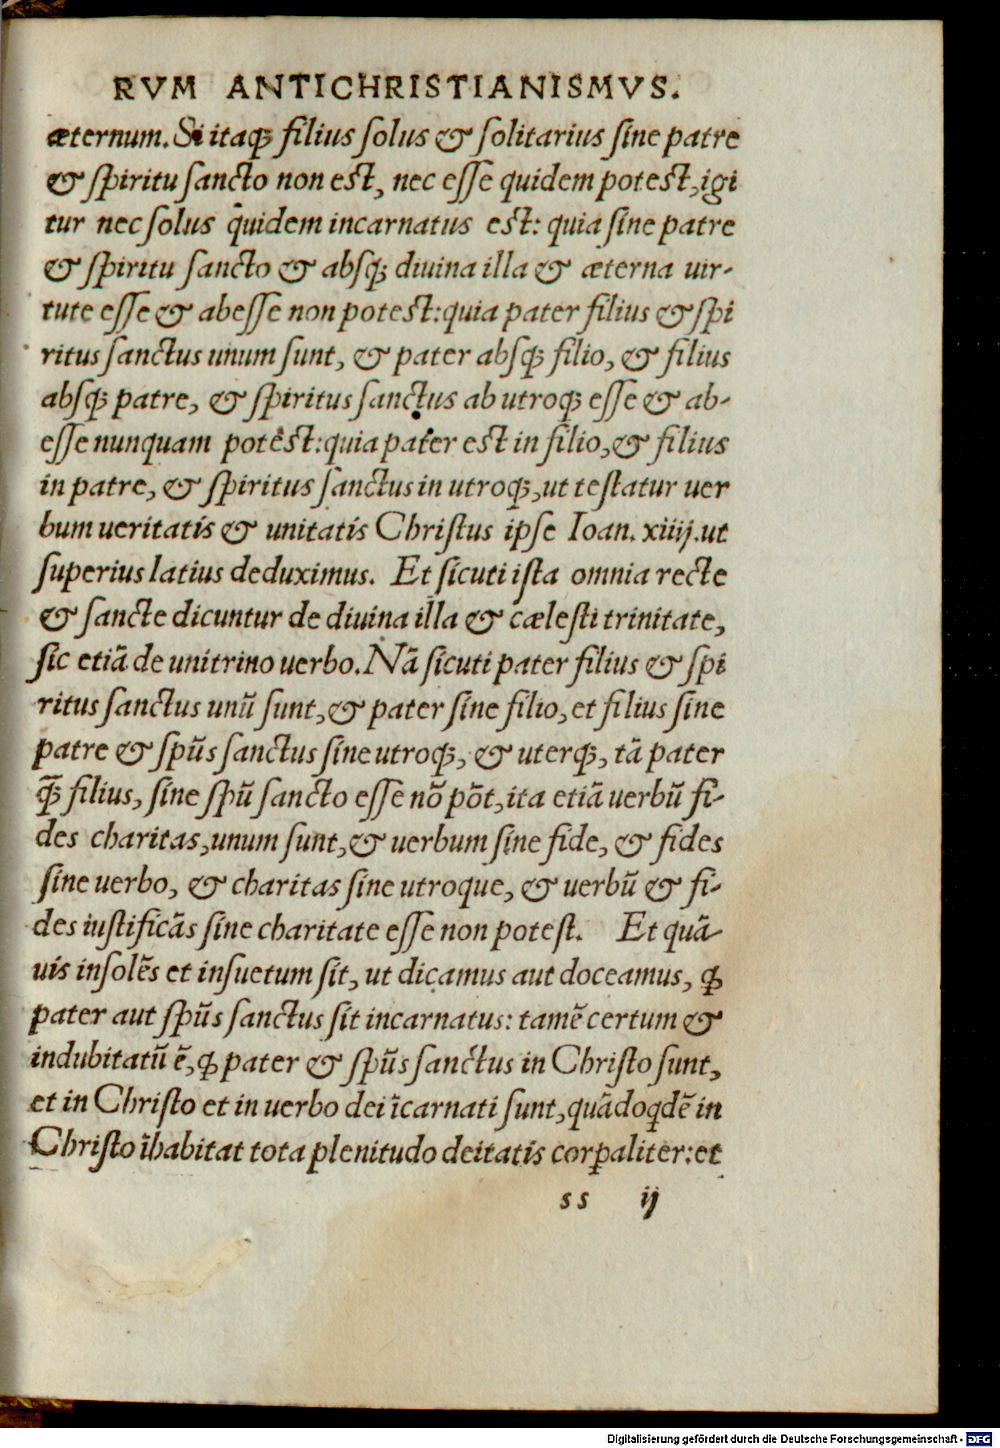 RVM ANTICHRISTIANISMVS.
æternum. Si itaqꝫ filius solus & solitarius sine patre
& spiritu sancto non est, nec esse quidem potest, igi
tur nec solus quidem incarnatus est: quia sine patre
& spiritu sancto & absqꝫ diuina illa & æterna uir-
tute esse & abesse non potest: quia pater filius & spi
ritus sanctus unum sunt, & pater absqꝫ filio, & filius
absqꝫ patre, & spiritus sanctus ab utroqꝫ esse & ab-
esse nunquam potest: quia pater est in filio, & filius
in patre, & spiritus sanctus in utroqꝫ, ut testatur uer
bum ueritatis & unitatis Christus ipse Ioan. xiiij. ut
superius latius deduximus. Et sicuti ista omnia recte
& sancte dicuntur de diuina illa & cælesti trinitate,
sic etiā de unitrino uerbo. Nā sicuti pater filius & spi
ritus sanctus unū sunt, & pater sine filio, et filius sine
patre & spūs sanctus sine utroqꝫ, & uterqꝫ, tā pater
q̄ꝫ filius, sine spū sancto esse nō pōt, ita etiā uerbū fi-
des charitas, unum sunt, & uerbum sine fide, & fides
sine uerbo, & charitas sine utroque, & uerbū & fi-
des iustificās sine charitate esse non potest. Et quā-
uis insolēs et insuetum sit, ut dicamus aut doceamus, ꝙ
pater aut spūs sanctus sit incarnatus: tamē certum &
indubitatū ē, ꝙ pater & spūs sanctus in Christo sunt,
et in Christo et in uerbo dei īcarnati sunt, quādoqdē in
Christo īhabitat tota plenitudo deitatis corꝑaliter: et
ss ij
Digitalisierung gefördert durch die Deutsche Forschungsgemeinschaft - DFG